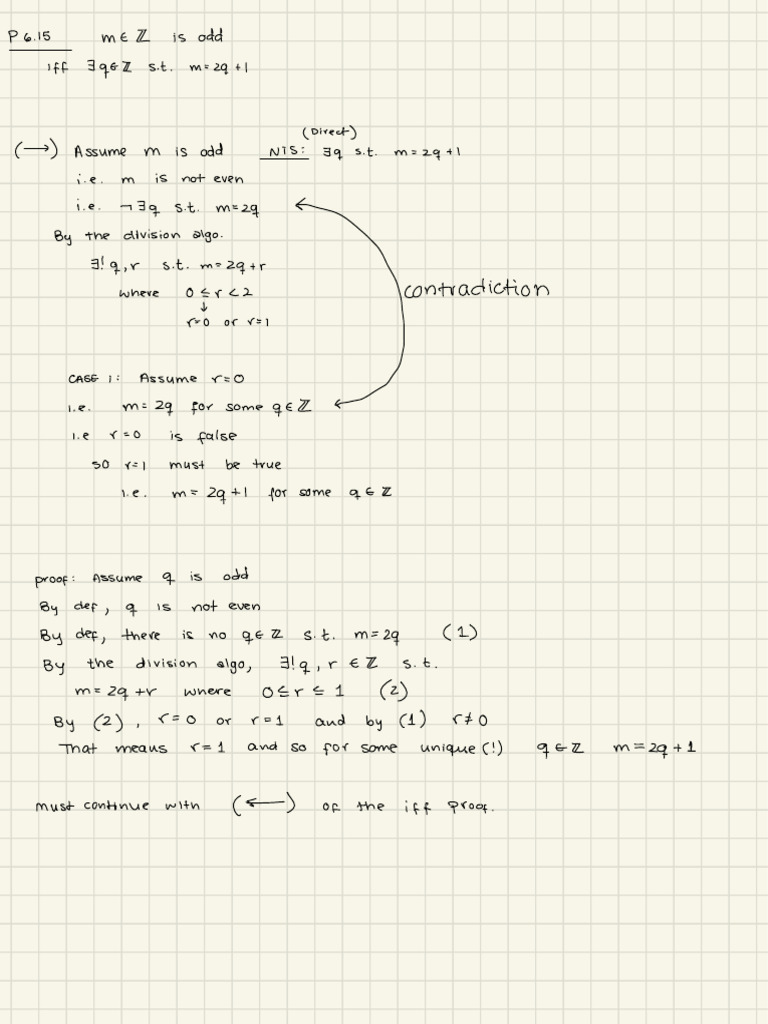 P 6.15 m ∈ ℤ is odd
iff ∃q∈ℤ s.t. m=2q+1
(Direct)
(→) Assume m is odd NTS: ∃q s.t. m=2q+1
i.e. m is not even
i.e. ¬∃q s.t. m=2q
By the division algo.
∃! q,r s.t. m=2q+r
contradiction
where 0≤r<2
↓
r=0 or r=1
CASE 1: Assume r=0
i.e. m=2q for some q∈ℤ
i.e r=0 is false
so r=1 must be true
i.e. m=2q+1 for some q∈ℤ
proof: Assume q is odd
By def, q is not even
By def, there is no q∈ℤ s.t. m=2q (1)
By the division algo, ∃!q,r∈ℤ s.t.
m=2q+r where 0≤r≤1 (2)
By (2), r=0 or r=1 and by (1) r≠0
That means r=1 and so for some unique(!) q∈ℤ m=2q+1
must continue with (←) of the iff proof.